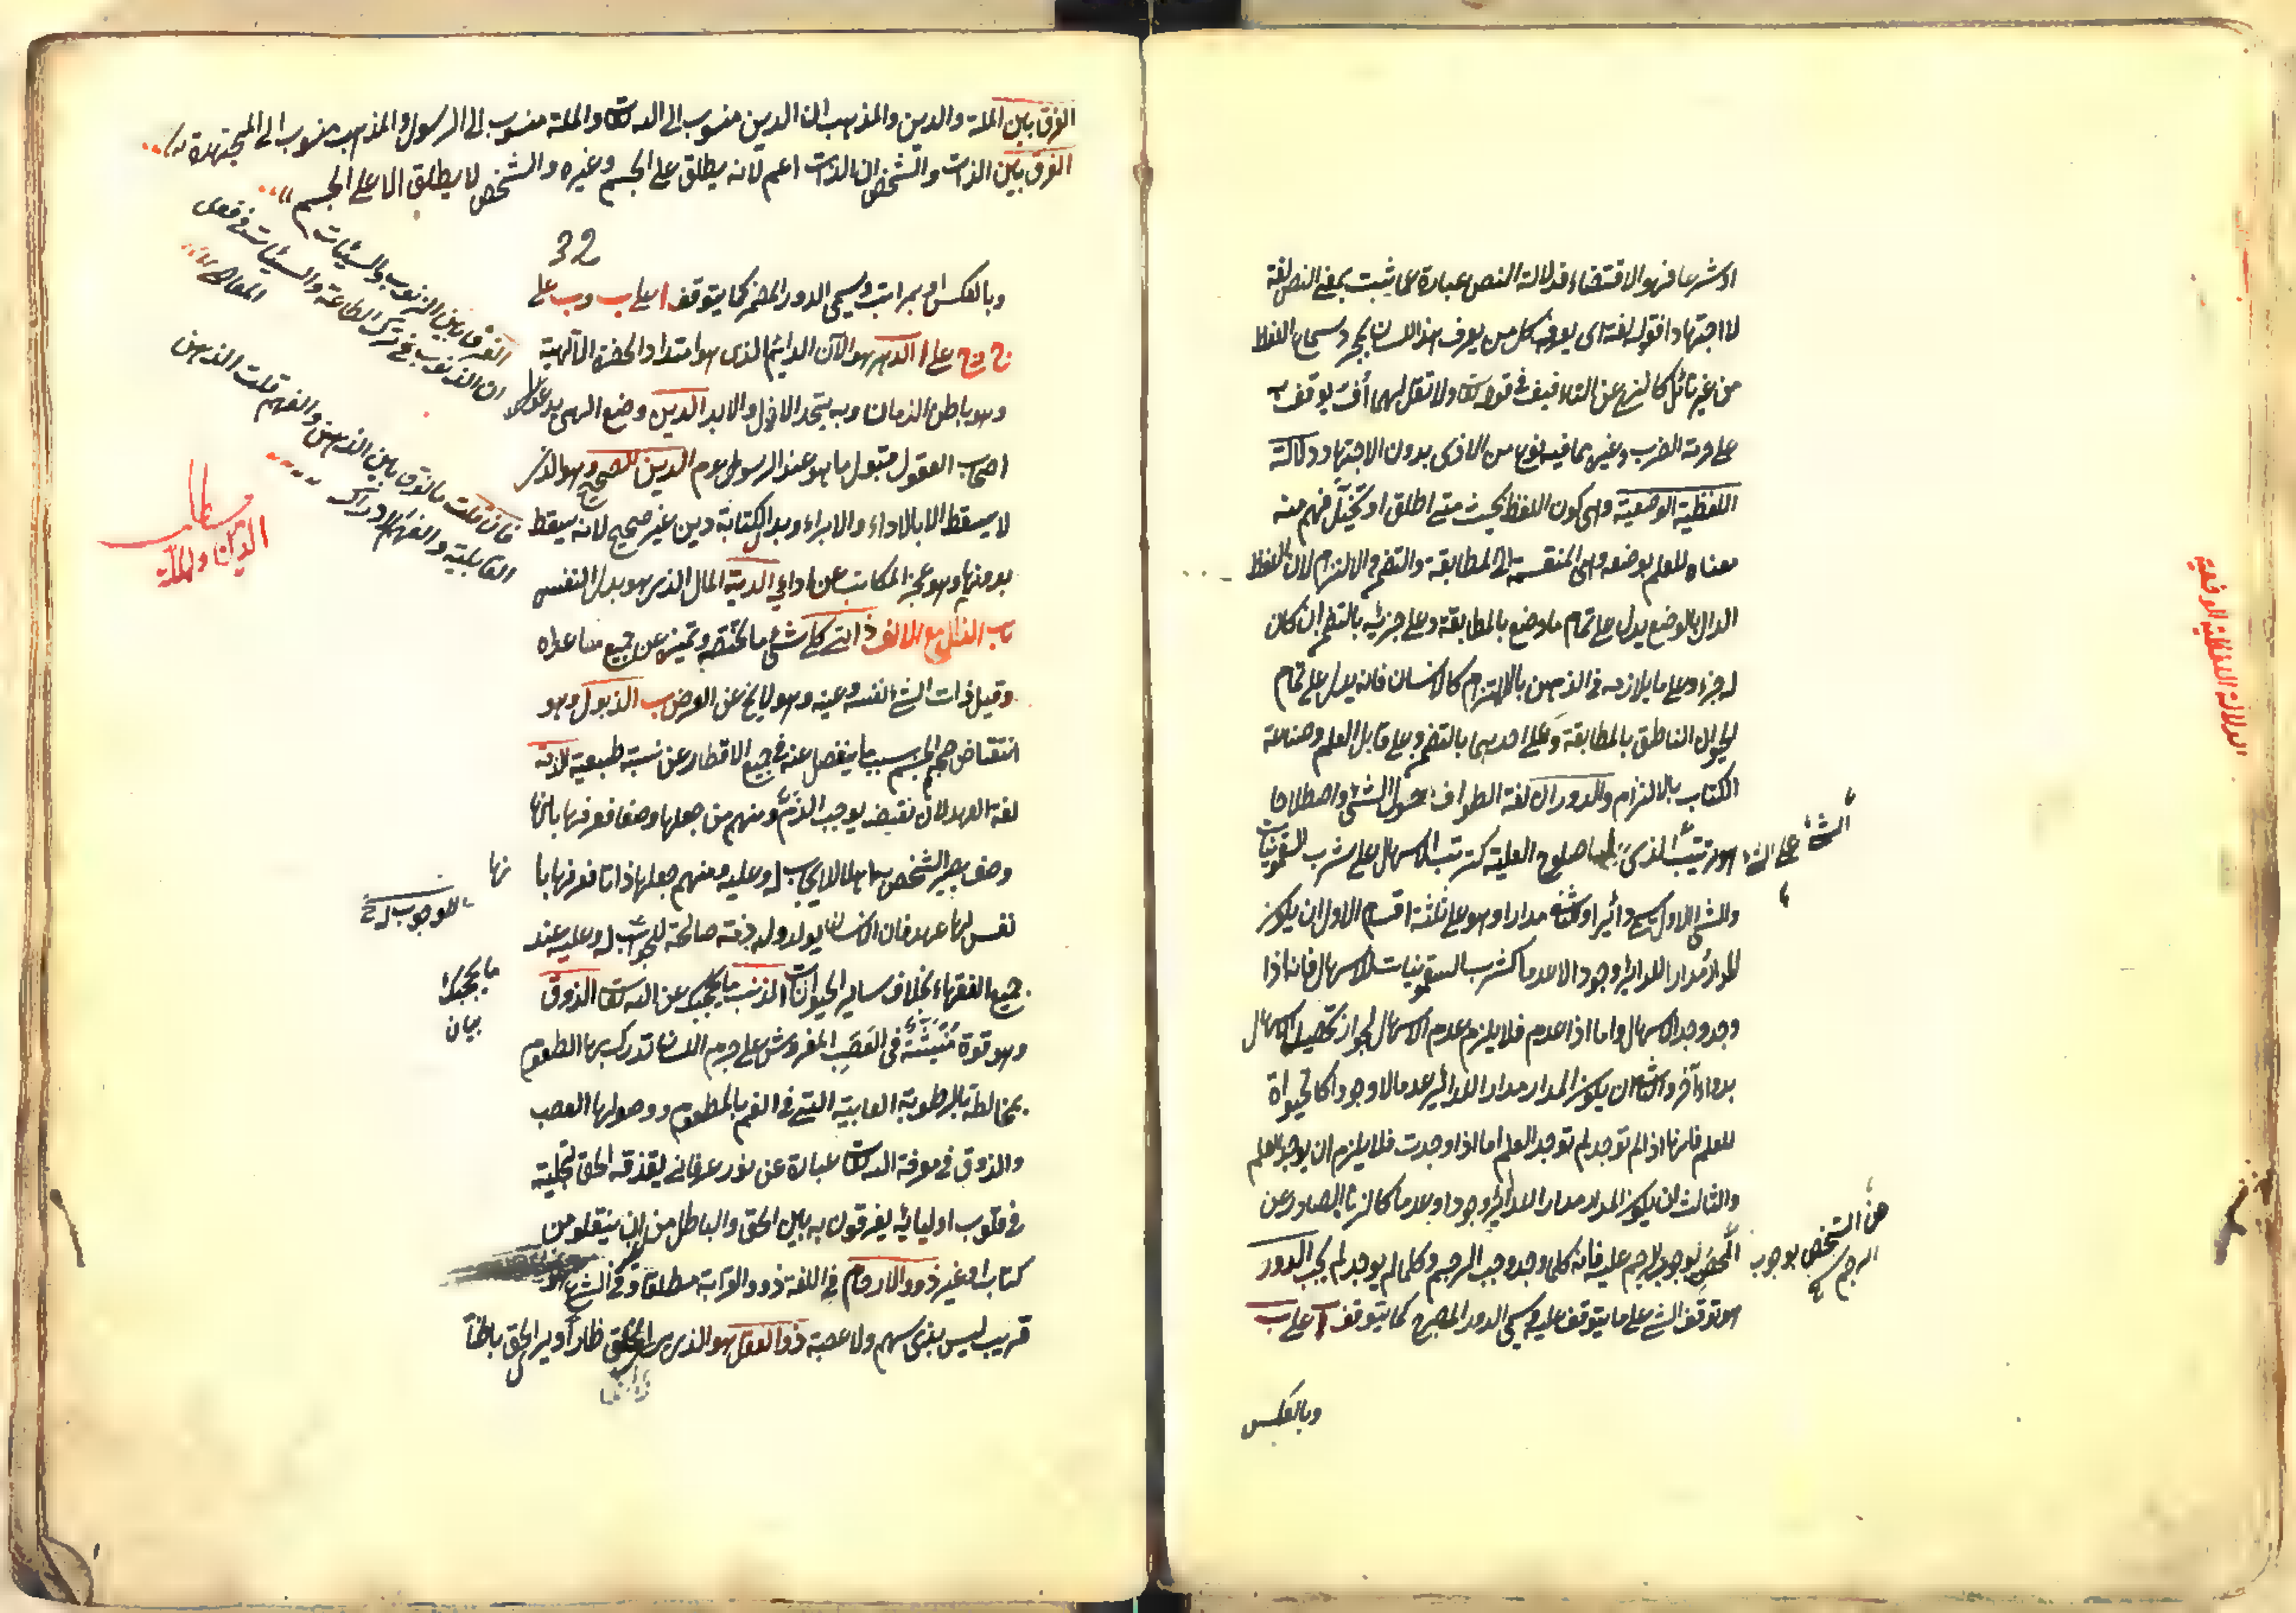 او شرعا فهو الاقتضاء فدلالة النص عبارة عما يثبت بمعنى النص لغة
لا اجتهادا فقوله لغة اى يعرفه كل من يعرف هذا اللسان بمجرد سماع اللفظ
من غير تأمل كالنهى عن التأفيف فى قوله تعالى ولا تقل لهما أف يوقف به
على حرمة الضرب وغيره مما فيه نوع من الاذى بدون الاجتهاد دلالة
اللفظية الوضعية وهى كون اللفظ بحيث متى اطلق او تخيل فهم منه
معناه للعلم بوضعه وهى المنقسمة الى المطابقة والتضمن والالتزام لان اللفظ
الدال بالوضع يدل على تمام ما وضع بالمطابقة وعلى جزئه بالتضمن ان كان
له جزء وعلى ما يلازمه فى الذهن بالالتزام كالانسان فانه يدل على تمام
الحيوان الناطق بالمطابقة وعلى احدهما بالتضمن وعلى قابل العلم وصناعة
الكتاب بالالتزام والدوران لغة الطواف حول الشئ واصطلاحا
هو ترتب الذى له صلوح العلية كترتب الاسهال على شرب السقمونيات
الشئ على الشئ
والشئ الاول يسمى دائرا والثانى مدارا وهو على ثلثة اقسام الاول ان يكون
المدار مدارا للدائر وجودا لا عدما كشرب السقمونيات للاسهال فانه اذا
وجد وجد الاسهال واما اذا عدم فلا يلزم عدم الاسهال لجواز تحصيل الاسهال
بدواء آخر والثانى ان يكون المدار مدارا للدائر عدما لا وجودا كالحيواة
للعلم فانها اذا لم توجد لم توجد العلم اما اذا وجدت فلا يلزم ان يوجد العلم
والثالث ان يكون المدار مدارا للدائر وجودا وعدما كالزنا الصادر عن
المحصن لوجوب الرجم عليه فانه كلما وجد وجب الرجم وكلما لم يوجد لم يجب الدور
هن الشخص بوجوب
الرجم
هو توقف الشئ على ما يتوقف عليه ويسمى الدور المصرح كما يتوقف ا على ب
وبالعكس
الدلالة اللفظية الوضعية
الفرق بين الملة والدين والمذهب ان الدين منسوب الى الله تعالى والملة منسوب الى الرسول والمذهب منسوب الى المجتهدة
الفرق بين الذات والشخص ان الذات اعم لانه يطلق على الجسم وغيره والشخص لا يطلق الا على الجسم
32
الفرق بين الذنوب والسيئات
ان الذنوب فى ترك الطاعة والسيئات فى فعل
المعاصى
فان قلت ما الفرق بين الذهن والفهم قلت الذهن
القابلية والفهم الادراك
مطلب
الدين والملة
وبالعكس او بمراتب ويسمى الدور المضمر كما يتوقف ا على ب وب على
ج وج على ا الدهر هو الآن الدائم الذى هو امتداد الحضرة الالهية
وهو باطن الزمان وبه يتحد الازل والابد الدين وضع الهى يدعو
اصحاب العقول قبول ما هو عند الرسول عم الدين الصحيح هو الذى
لا يسقط الا بالاداء والابراء وبدل الكتابة دين غير صحيح لانه يسقط
بدونهما وهو عجز المكاتب عن ادائه الدية المال الذى هو بدل النفس
باب الذال مع الالف ذاتى كل شئ ما يخصه ويميزه عن جميع ما عداه
وقيل ذات الشئ نفسه وعينه وهو لا يخ عن العرض ب الذبول هو
انتقاص حجم الجسم بسبب ما ينفصل عنه فى جميع الاقطار عن نسبة طبيعية
لغة العهد لان نقضه يوجب الذم ومنهم من جعلها وصفا فعرفها بانها
وصف يصير الشخص به اهلا للايجاب له وعليه ومنهم جعلها ذاتا فعرفها با
نها
نفس لها عهد فان الانسان يولد وله ذمة صالحة للوجوب له وعليه عند
للوجوب له
جميع الفقهاء بخلاف سائر الحيوانات الذنب ما يحجبك عن الله تعالى الذوق
ما يحجبك
بيان
وهو قوة منبثة فى العصب المفروش على جرم اللسان تدرك بها الطعوم
بمخالطة الرطوبة اللعابية التى فى الفم بالمطعوم ووصولها العصب
والذوق فى معرفة الله تعالى عبارة عن نور عرفانى يقذفه الحق بتجليه
فى قلوب اوليائه يفرقون به بين الحق والباطل من ان ينقلوه من
كتاب او غيره ذوو الارحام فى اللغة ذوو القرابة مطلقا وفى الشرع
قريب ليس بذى سهم ولا عصبة ذو العقل هو الذى يرى الخلق ظاهرا ويرى الحق باطنا